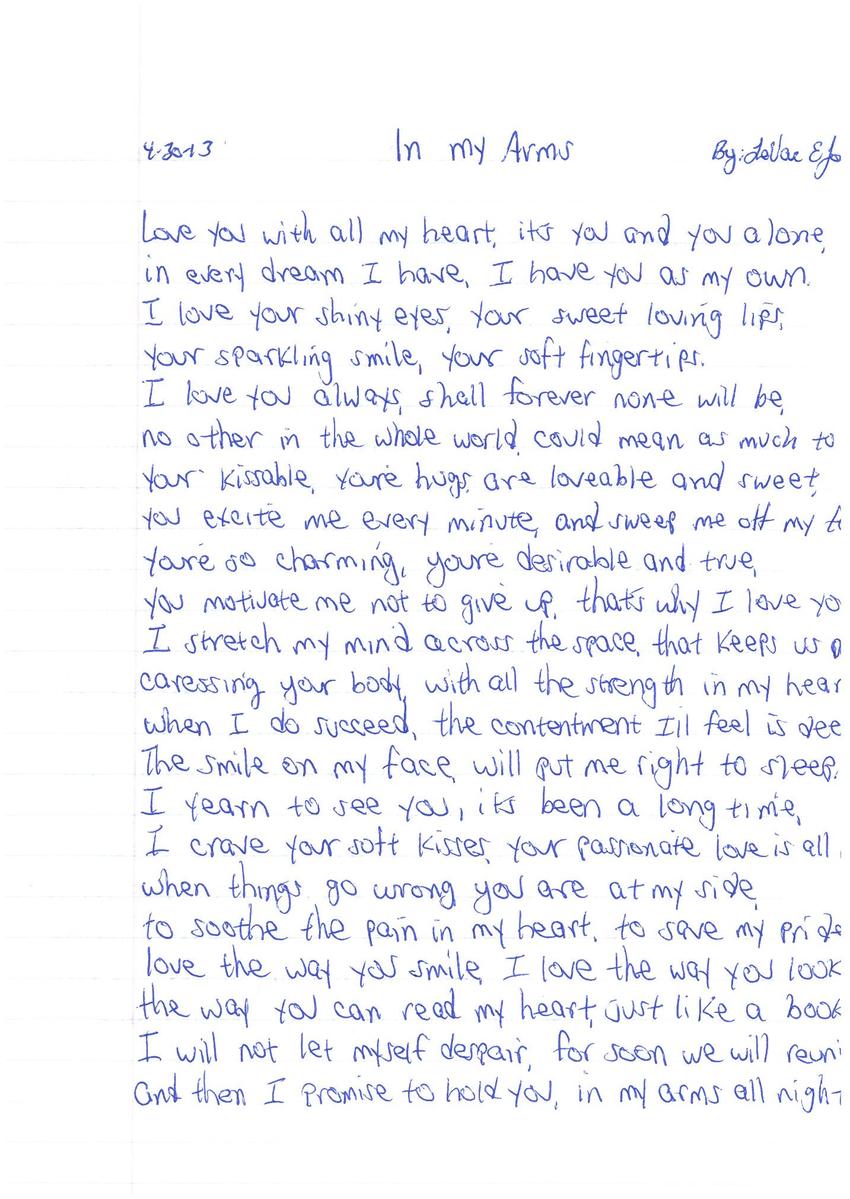 4-30-13 In my Arms By:
Love you with all my heart, it's you and you alone,
in every dream I have, I have you as my own.
I love your shiny eyes, your sweet loving lips,
your sparkling smile, your soft fingertips.
I love you always, shall forever none will be,
no other in the whole world, could mean as much to
Your kissable, you're hugs are loveable and sweet,
you excite me every minute, and sweep me off my
You're so charming, you're desirable and true,
you motivate me not to give up, that's why I love yo
I stretch my mind across the space, that keeps us
caressing your body, with all the strength in my hear
when I do succeed, the contentment I'll feel is dee
The smile on my face, will put me right to sleep.
I yearn to see you, it's been a long time,
I crave your soft kisses, your passionate love is all
when things go wrong you are at my side,
to soothe the pain in my heart, to save my pride
love the way you smile, I love the way you look
the way you can read my heart, just like a book
I will not let myself despair, for soon we will reuni
And then I promise to hold you, in my arms all nigh